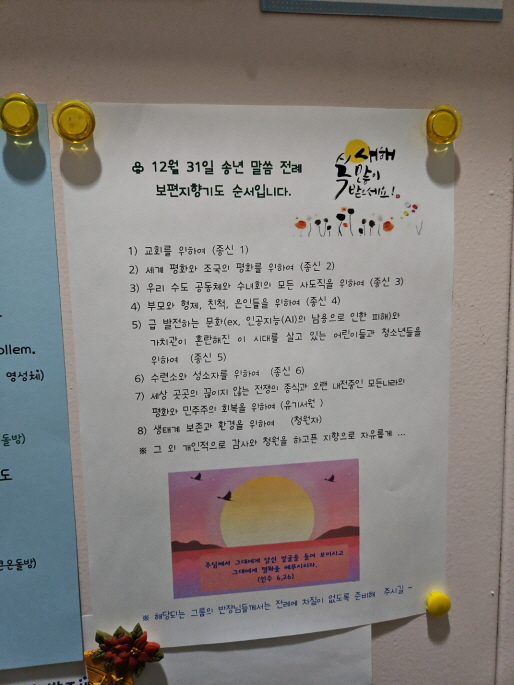 ollem.
영성체)
돌방)
도
큰돌방)
♧ 12월 31일 송년 말씀 전례
보편지향기도 순서입니다.
새해
복 많이
받으세요!
1) 교회를 위하여 (종신 1)
2) 세계 평화와 조국의 평화를 위하여 (종신 2)
3) 우리 수도 공동체와 수녀회의 모든 사도직을 위하여 (종신 3)
4) 부모와 형제, 친척, 은인들을 위하여 (종신 4)
5) 급 발전하는 문화(ex. 인공지능(AI)의 남용으로 인한 피해)와
가치관이 혼란해진 이 시대를 살고 있는 어린이들과 청소년들을
위하여 (종신 5)
6) 수련소와 성소자를 위하여 (종신 6)
7) 세상 곳곳의 끊이지 않는 전쟁의 종식과 오랜 내전중인 모든나라의
평화와 민주주의 회복을 위하여 (유기서원 )
8) 생태계 보존과 환경을 위하여 (청원자)
※ 그 외 개인적으로 감사와 청원을 하고픈 지향으로 자유롭게 ...
주님께서 그대에게 당신 얼굴을 들어 보이시고
그대에게 평화를 베푸시리라.
(민수 6,26)
※ 해당되는 그룹의 반장님들께서는 전례에 차질이 없도록 준비해 주시길 ~